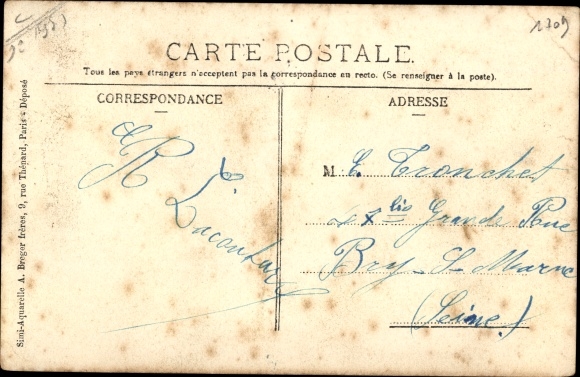 1709
CARTE POSTALE.
Tous les pays étrangers n'acceptent pas la correspondance au recto. (Se renseigner à la poste).
CORRESPONDANCE
ADRESSE
M E. Tronchet
bis Grande Rue
Bry-S-Marne
(Seine.)
R
Simi-Aquarelle A. Breger frères, 9, rue Thénard, Paris - Déposé